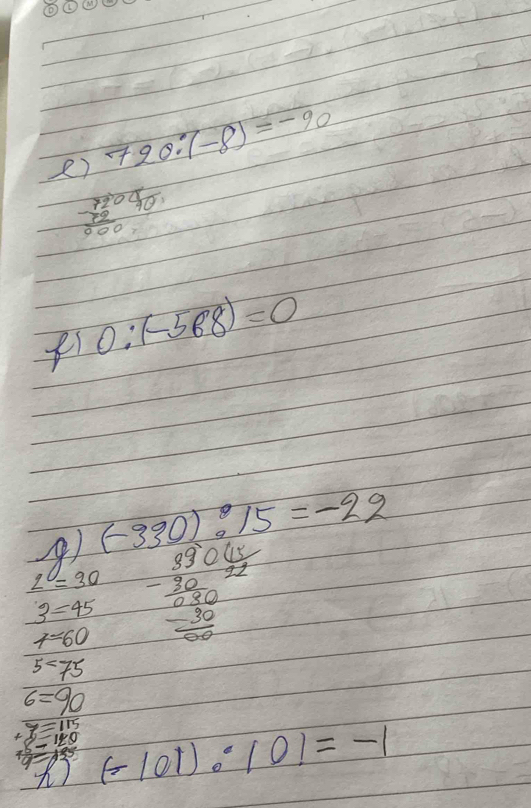 D L M M
e) 720:(-8) = -90
720 8
-72 90
000
f) 0:(-568) = 0
g) (-330) : 15 = -22
2 = 30
3 = 45
4 = 60
5 = 75
6 = 90
330 15
- 30 22
030
- 30
00
h) (-101) : 101 = -1